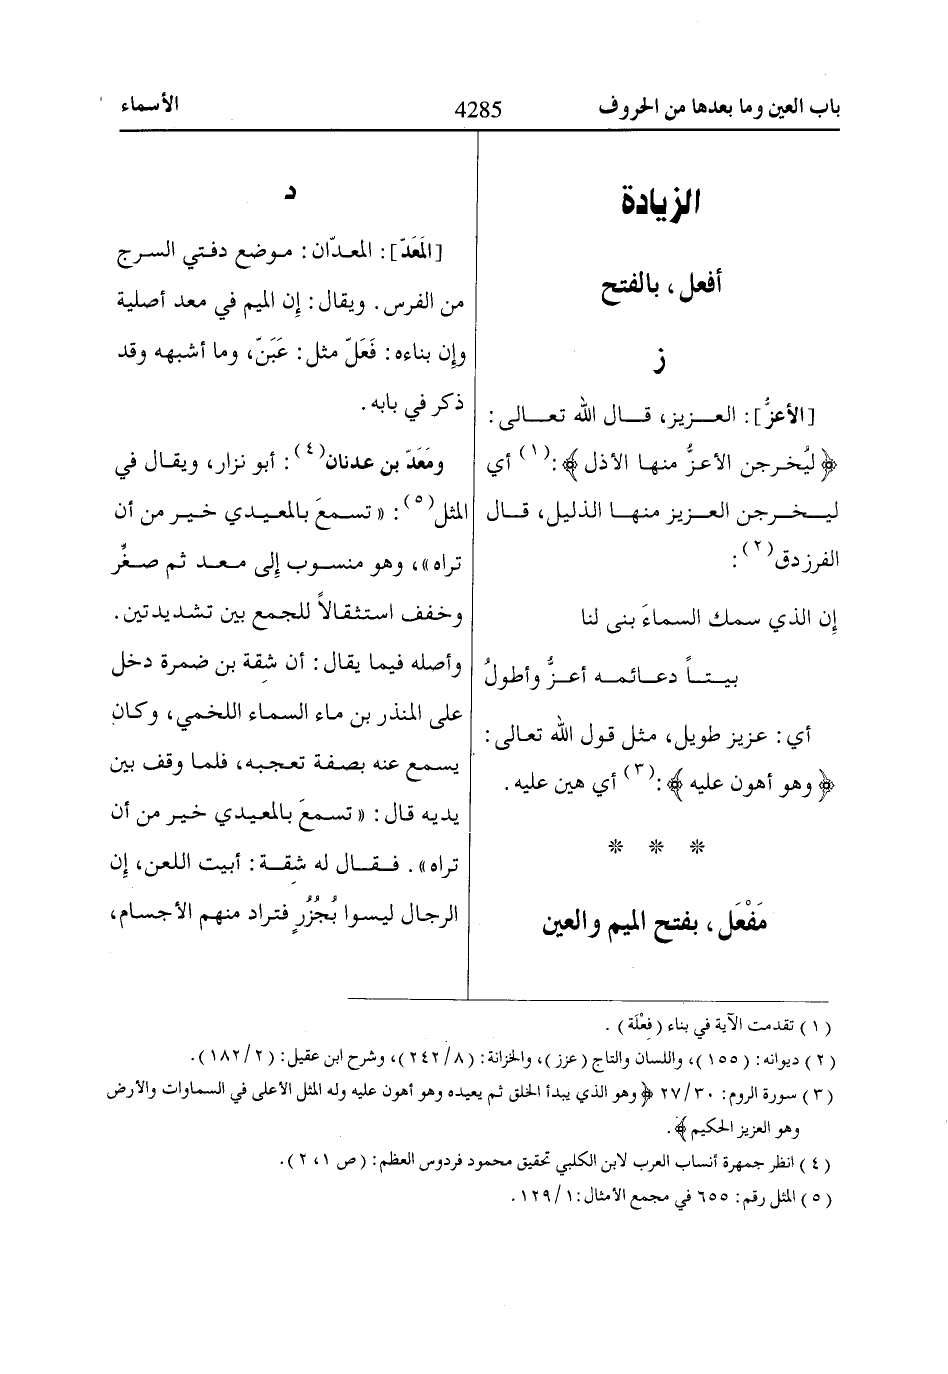 باب العين وما بعدها من الحروف 4285 الأسماء
الزيادة
أفعل، بالفتح
ز
[الأعزُّ]: العـــزيز، قـــال الله تعـــالى:
﴿ليُخرجن الأعزُّ منهـا الأذل﴾:(١) أي
ليـــخـــرجن العـزيز منهـــا الذليل، قـــال
الفرزدق(٢):
إن الذي سمك السماءَ بنى لنا
بيـتـاً دعـائمـه أعـزُّ وأطولُ
أي: عزيز طويل، مثل قول الله تعـالى:
﴿وهو أهون عليه﴾:(٣) أي هين عليه.
* * *
مَفْعَل، بفتح الميم والعين
د
[المَعَدّ]: المعـدّان: مـوضع دفـتي السـرج
من الفرس. ويقال: إن الميم في معد أصلية
وإن بناءه: فَعَلّ مثل: عَبَنّ، وما أشبهه وقد
ذكر في بابه.
ومَعَدّ بن عدنان(٤): أبو نزار، ويقـال في
المثل(٥): «تسمعَ بالمعيدي خيـر من أن
تراه»، وهو منسـوب إلى معـد ثم صغِّر
وخفف استثقالاً للجمع بين تشديدتين.
وأصله فيما يقال: أن شقة بن ضمرة دخل
على المنذر بن ماء السماء اللخمي، وكان
يسمع عنه بصفة تعجبه، فلما وقف بين
يديه قال: «تسمعَ بالمعيدي خير من أن
تراه». فـقـال له شقـة: أبيت اللعن، إن
الرجال ليسوا بُجُزُرٍ فتراد منهم الأجسام،
(١) تقدمت الآية في بناء (فِعْلَة).
(٢) ديوانه: (١٥٥)، واللسان والتاج (عزز)، والخزانة: (٨/ ٢٤٢)، وشرح ابن عقيل: (٢/ ١٨٢).
(٣) سورة الروم: ٣٠/ ٢٧ ﴿وهو الذي يبدأ الخلق ثم يعيده وهو أهون عليه وله المثل الأعلى في السماوات والأرض
وهو العزيز الحكيم﴾.
(٤) انظر جمهرة أنساب العرب لابن الكلبي تحقيق محمود فردوس العظم: (ص ١، ٢).
(٥) المثل رقم: ٦٥٥ في مجمع الأمثال: ١/ ١٢٩.